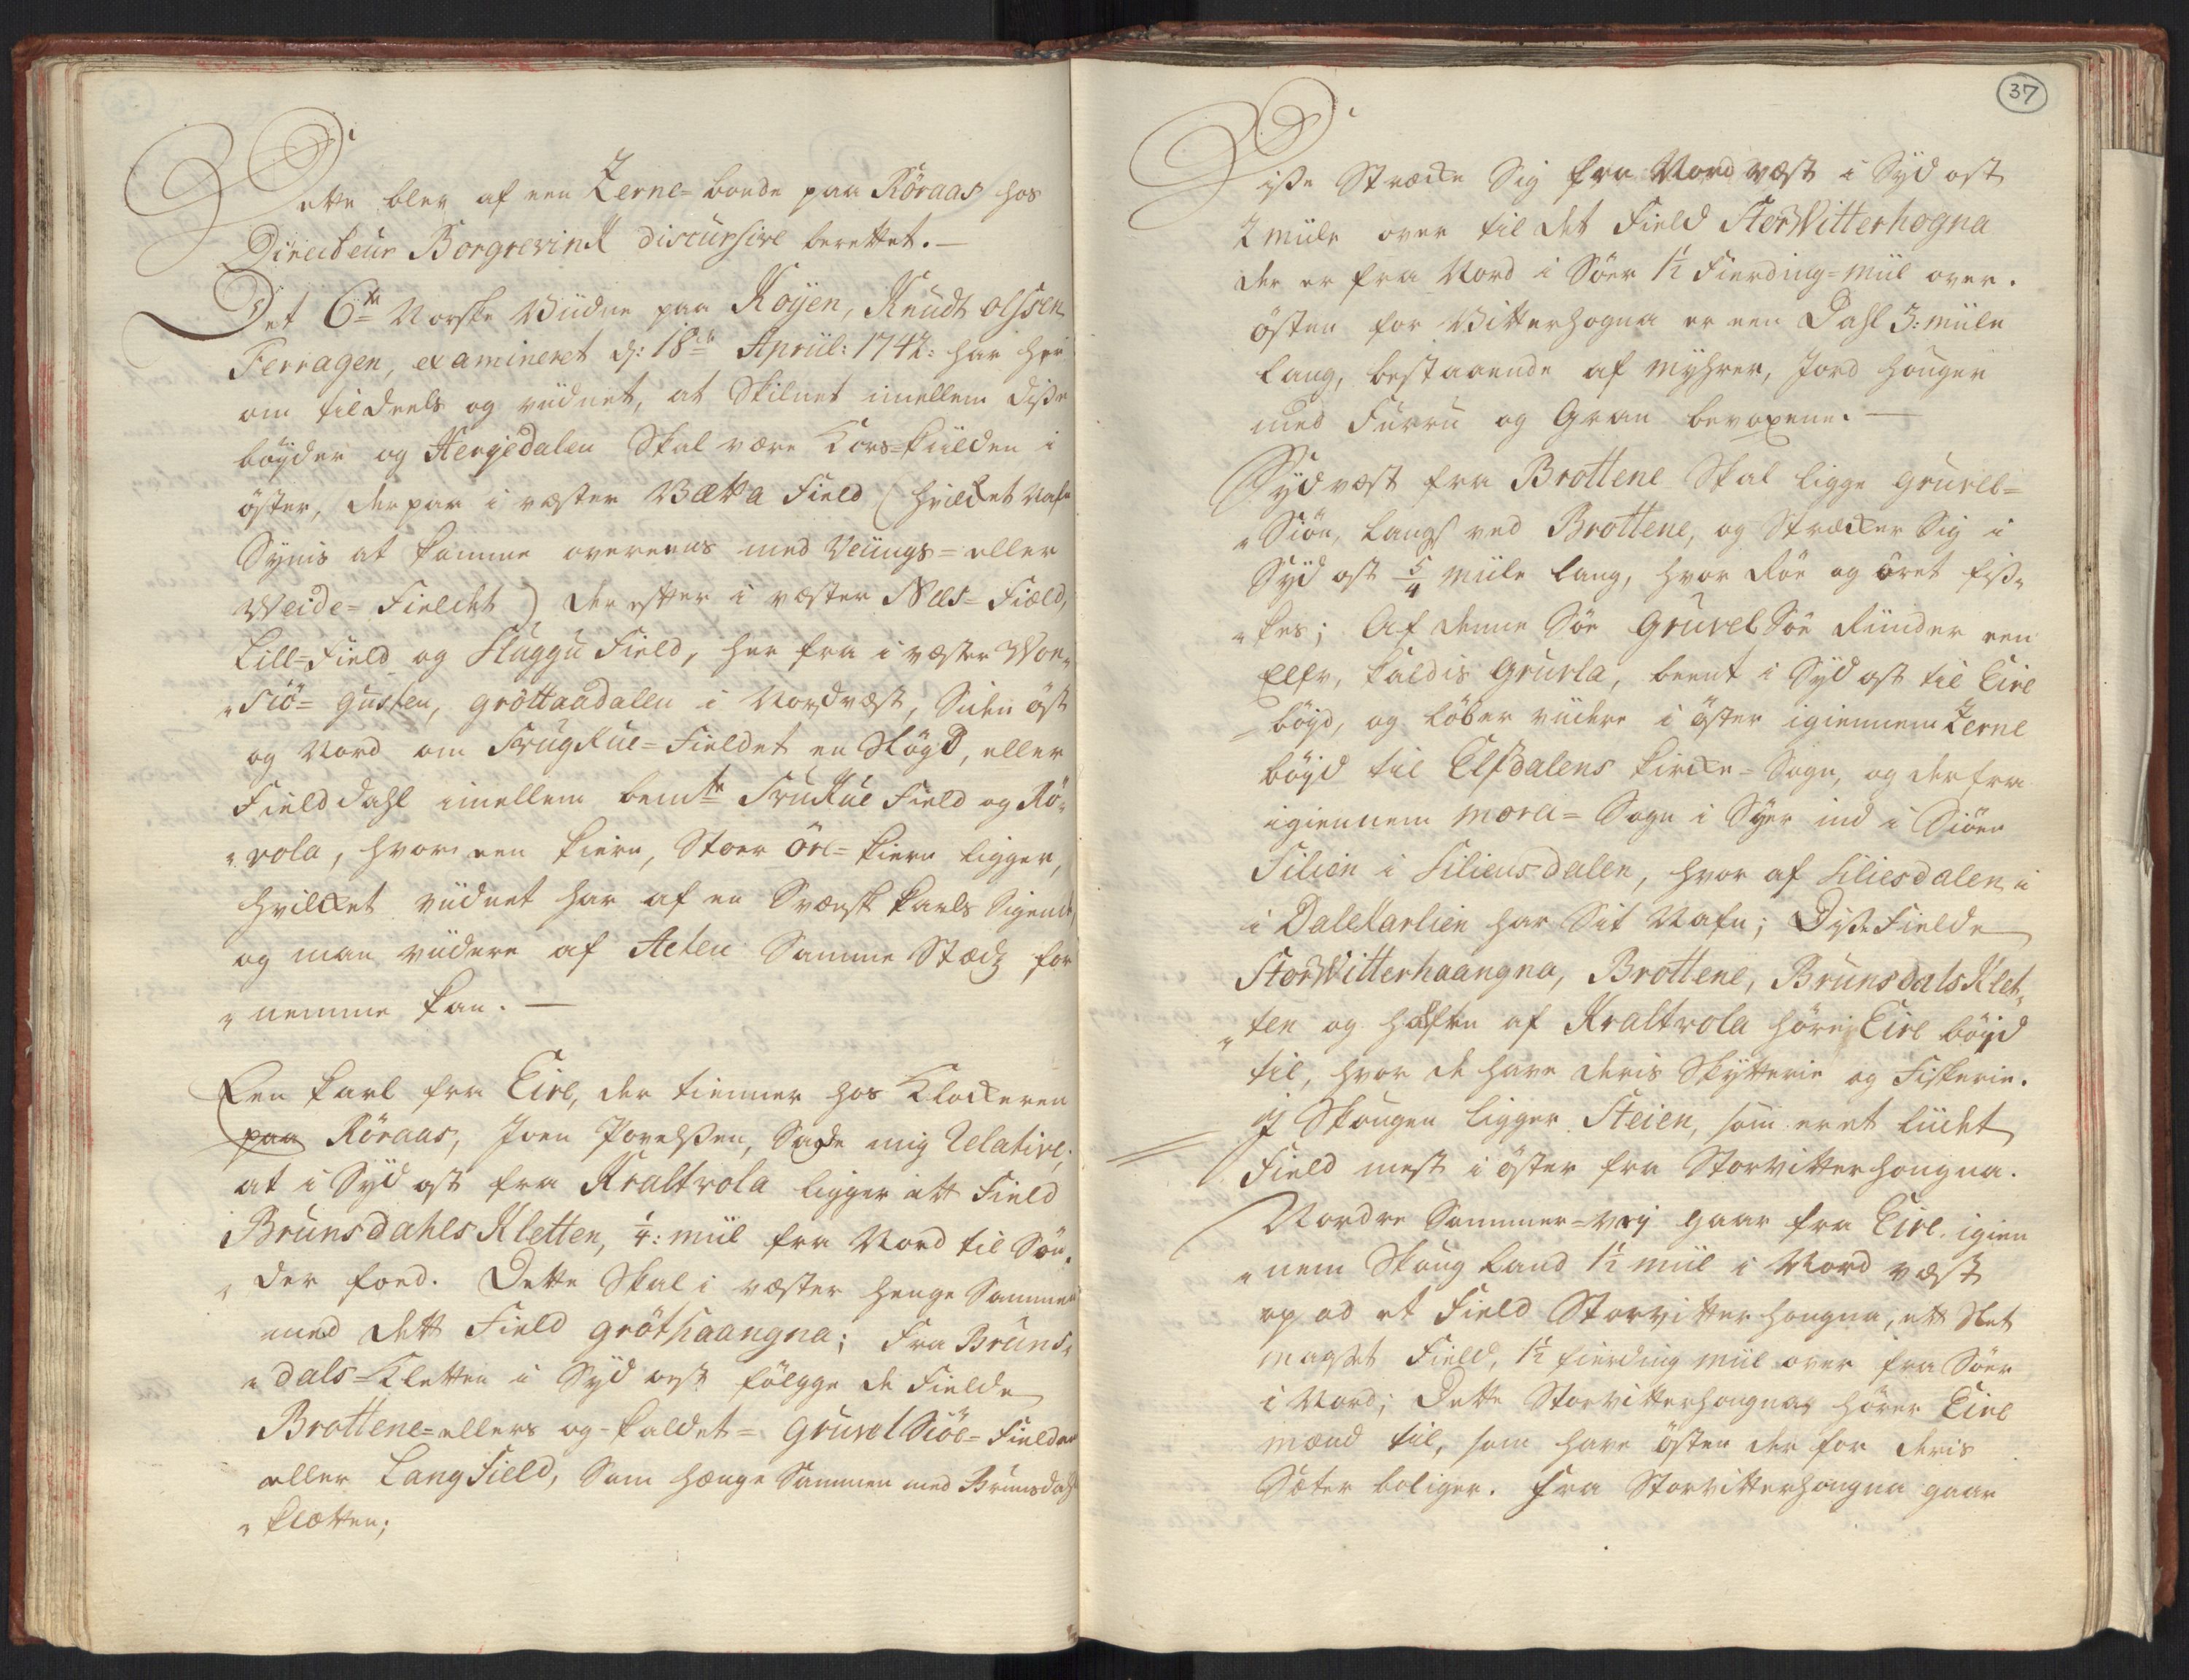 Dette blev af een Zerne-bonde paa Röraas hos
Directeur Borgrevink discursive berettet. —
Det 6te Norske Viidne paa Royen, Knudt olssen
Ferragen, examineret d: 18de Apriil: 1742: har her
om tildeels og viidnet, at Skilnet imellem disse
böyder og Herjedalen Skal være Kors-kiilden i
öster, der paa i væster Vætta Field (hvilcket Nafn
Synis at komme overeens med Veiings- eller
Weide-Fieldet) der efter i væster Næs-Field,
Lill-Field og Skuggu Field, her fra i væster Won„
„siö-gusten, gröttaadalen i Nordvæst, Siden öst
og Nord om Trugkue-Fieldet en Högd, eller
Field dahl imellem bemte Trukue Field og Rö„
„vola, hvor een kiern, Stoer öre-kiern ligger,
hvilcket viidnet har af en Svænsk karls Sigende,
og man viidere af Acten Samme Stædz for
„nemme kan. —
Een karl fra Eire, der tienner hos Klockeren
paa Röraas, Joen Povelssen, Sagde mig Relative,
at i Syd ost fra Kraltvola ligger ett Field
Brunsdahls Kletten, 1/4: miil fra Nord til Sön„
„der foed. Dette Skal i væster henge Sammen
med dett Field gröthaangna; Fra Bruns„
„dals-Kletten i Syd ost fölgge de Fielde
Brottene-ellers og-kaldet-Gruvel Siöe-Fieldene
eller Langfield, Som hænge Sammen med Brunsdahls
„klætten;
37
Disse Strække Sig fra Nord væst i Syd ost
2 miile over til det Field Stor Witterhogna
der er fra Nord i Söer 1½ Fierding-miil over.
östen for Vitterhogna er een Dahl 3: miile
lang, bestaaende af Myhrer, Jord hougen
med Furru og Gran bevoxene. —
Sydvæst fra Brottene Skal ligge gruvel-
„Siön, langs ved Brottene, og Strækker Sig i
Syd ost 5/4 miile lang, hvor Röe og öret fis„
„kes; Af denne Söe Gruvel Söe Rinder een
Elfv, kaldis Gruvla, beent i Syd ost til Eire
-böyd, og löber viidere i öster igiennem Zerne
böyd til Elfdalens kircke-Sogn, og der fra
igiennem Mora-Sogn i Syer ind i Siöen
Silien i Siliensdalen, hvor af Siliesdalen i
i Dalekarlien har Sit Nafn; Disse Fielde
Stor Witterhaangna, Brottene, Brunsdals Klet„
„ten og halften af Kraltvola hörer Eire böyd
til, hvor de have deris Skytterie og Fiskerie.
J Skougen ligger Steien, som er et liidet
Field mest i öster fra Storvitterhongna.
Nordre Sommer-vej gaar fra Eire igien
„nem Skoug Land 1½ miil i Nord væst
op ad et Field Storvitterhongna, ett Slet
magtet Field, 1½ fierding miil over fra Söer
i Nord; Dette Storvitterhongna hörer Eire
mænd til, som have östen der for deris
Sæter boliger. Fra Storvitterhongna gaar